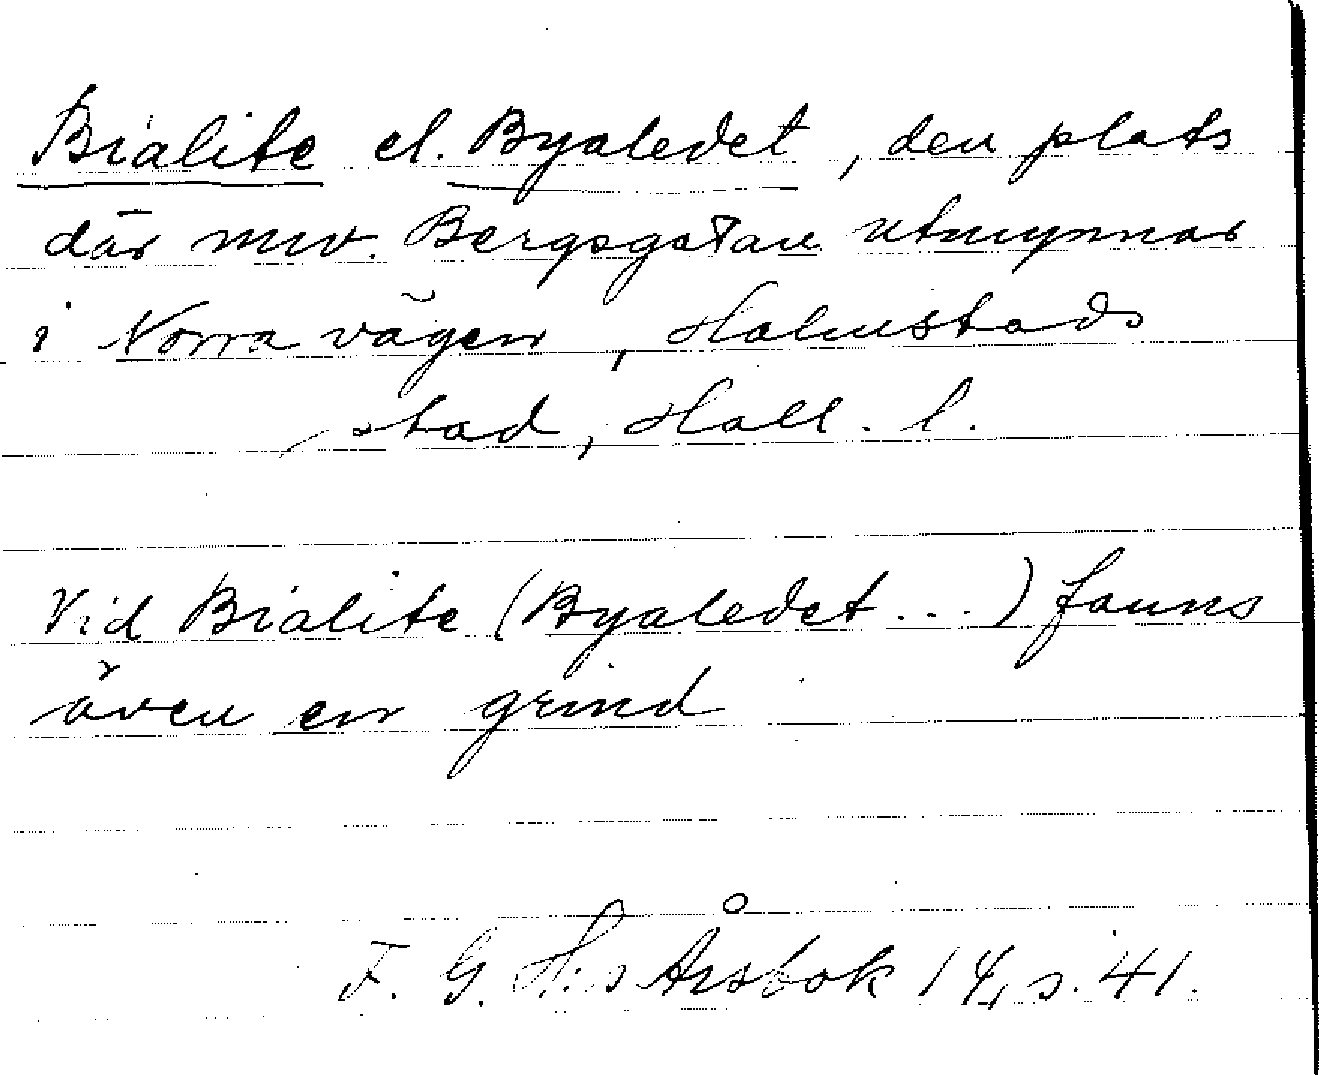 Bialite el. Byaledet, den plats
där nuv. Bergsgatan utmynnar
i Norra vägen, Halmstads
stad, Hall. l.
Vid Bialite (Byaledet...) fanns
även en grind
F. G. H:s Årsbok 14, s. 41.